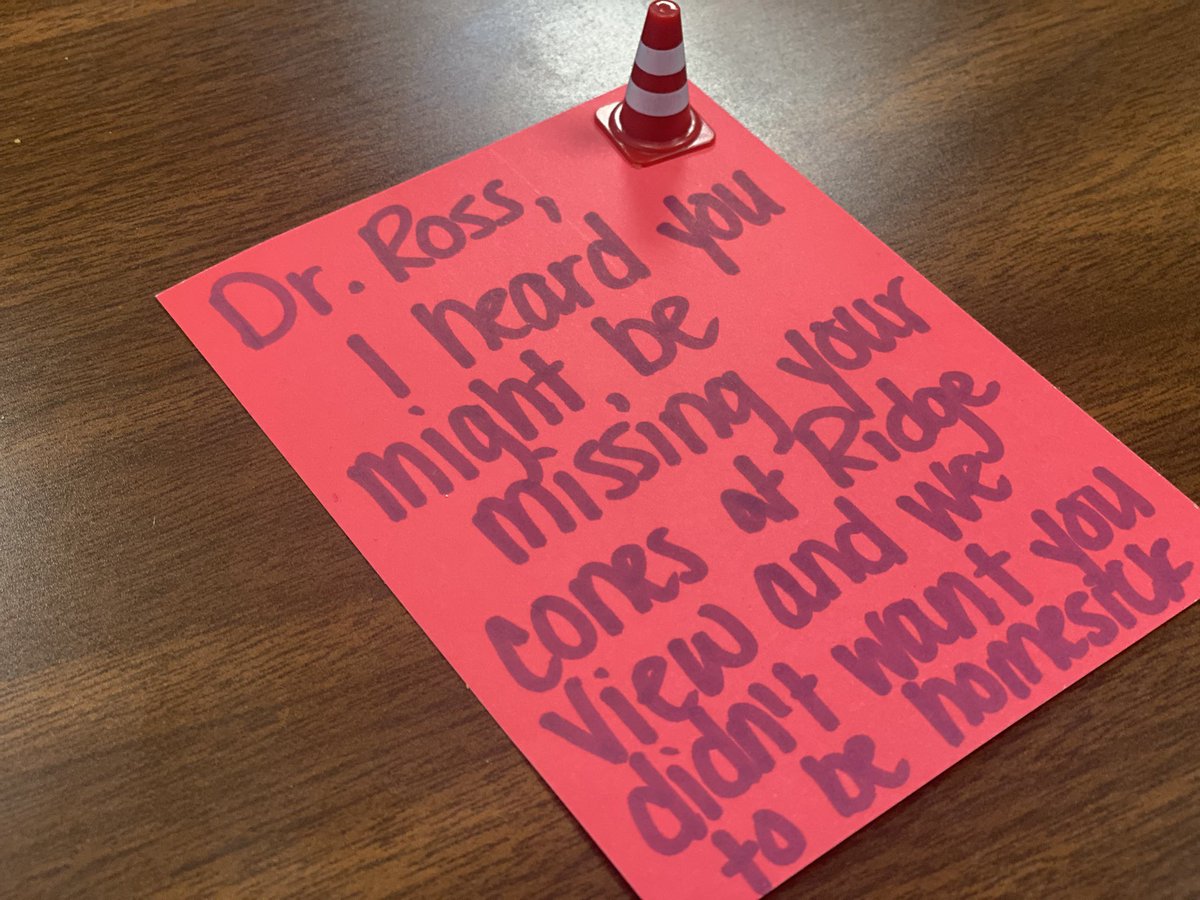 Dr. Ross,
I heard you
might be
missing your
cones at Ridge
View and we
didn't want you
to be homesick